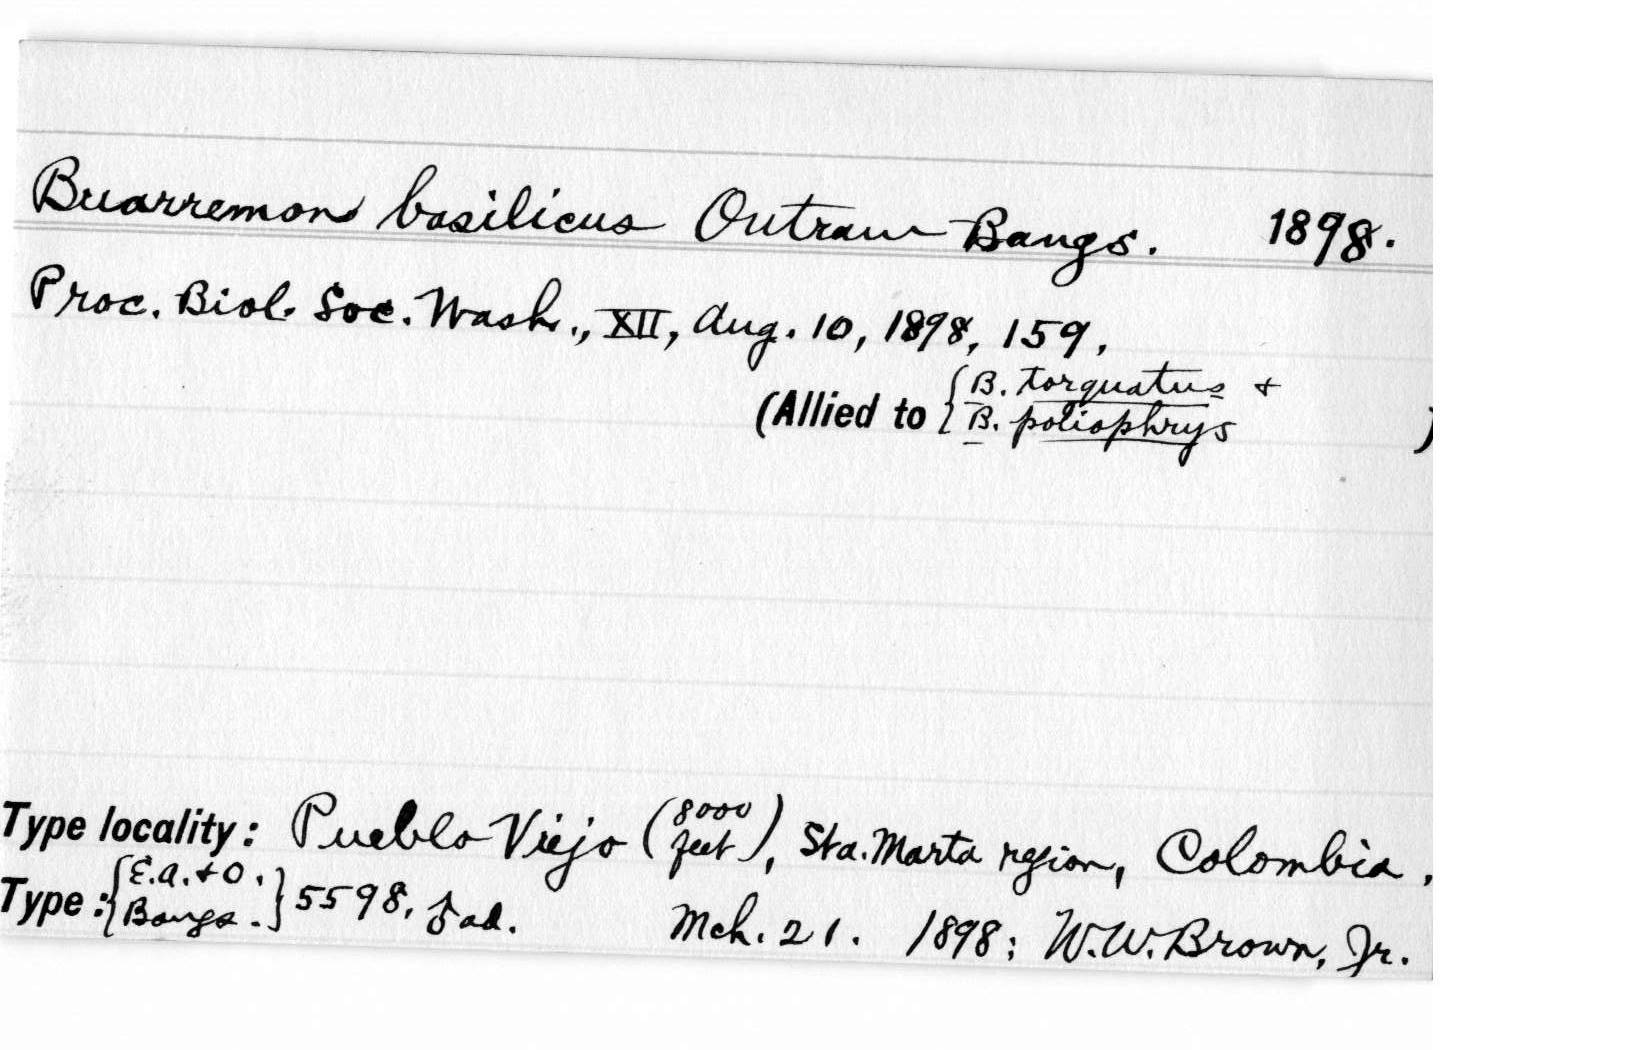 Buarremon basilicus Outram Bangs. 1898.
Proc. Biol. Soc. Wash., XII, Aug. 10, 1898, 159.
(Allied to { B. torquatus &
B. poliophrys )
Type locality: Pueblo Viejo (8000 feet), Sta. Marta region, Colombia.
Type: { E.A. & O. Bangs. } 5598, ♂ ad. Mch. 21. 1898; W.W. Brown, Jr.